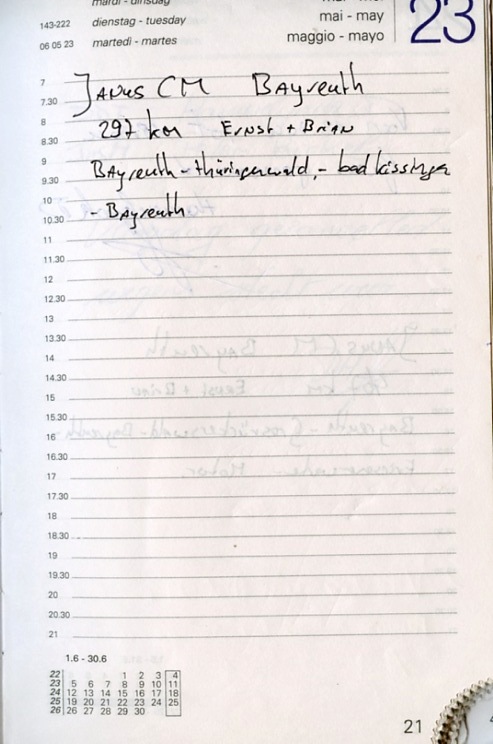 mardi - dinsdag
143-222 dienstag - tuesday mai - may 23
06 05 23 martedì - martes maggio - mayo
7 Janus CM Bayreuth
7.30
8 297 km Ernst + Brian
8.30
9 Bayreuth - thüringerwald, - bad kissingen
9.30
10 - Bayreuth
10.30
11
11.30
12
12.30
13
13.30
14
14.30
15
15.30
16
16.30
17
17.30
18
18.30
19
19.30
20
20.30
21
1.6 - 30.6
22 1 2 3 4
23 5 6 7 8 9 10 11
24 12 13 14 15 16 17 18
25 19 20 21 22 23 24 25
26 26 27 28 29 30
21